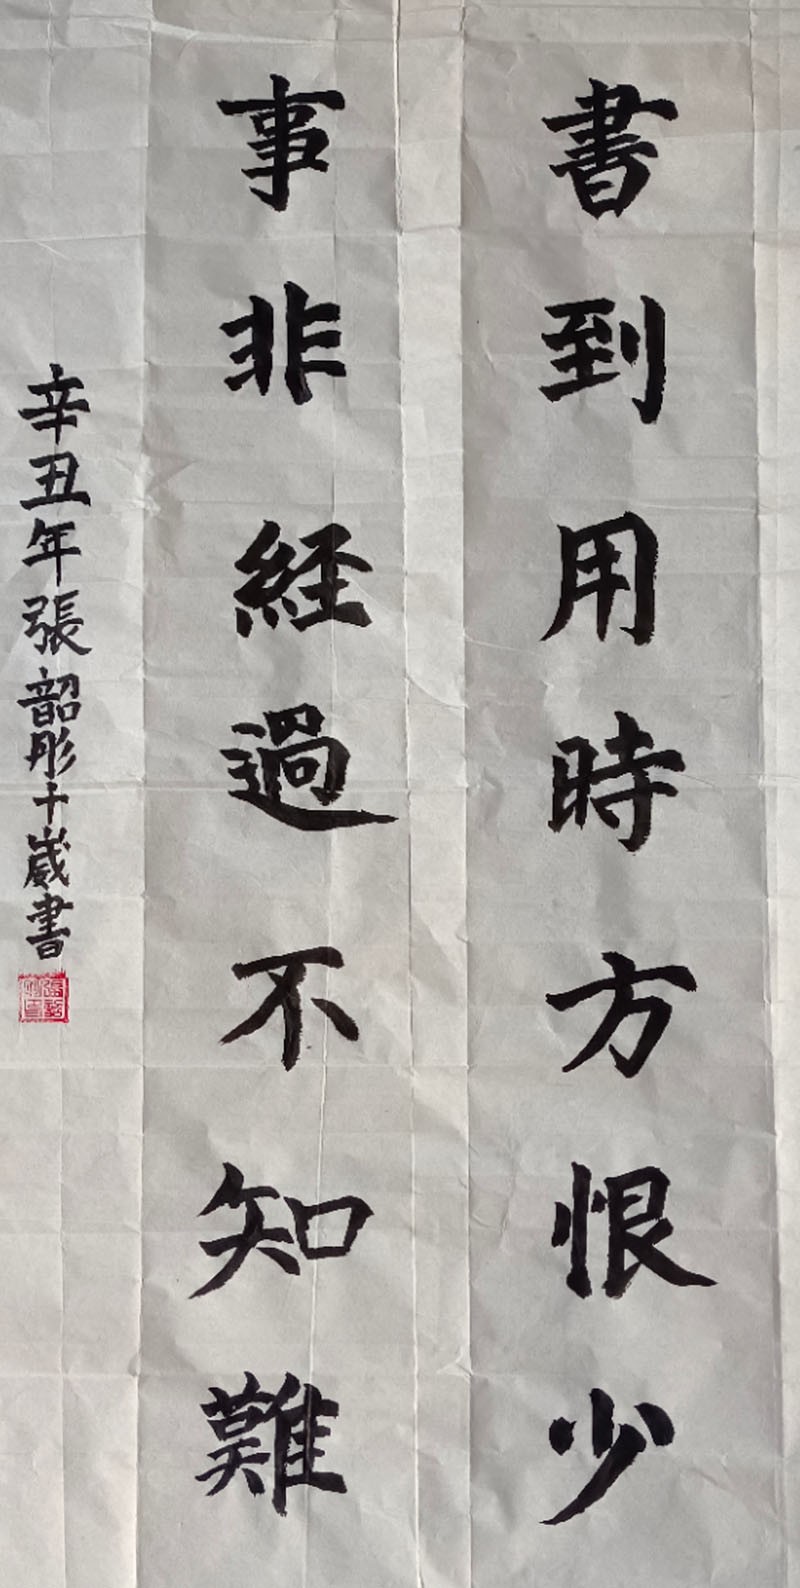 書到用時方恨少
事非経過不知難
辛丑年張韶彤十歲書